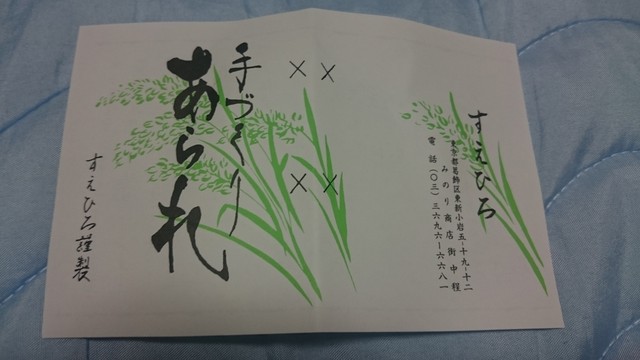 すえひろ
東京都葛飾区東新小岩五-十九-十二
みのり商店街中程
電話(〇三)三六九六ー六六八一
手づくり
あられ
すえひろ謹製